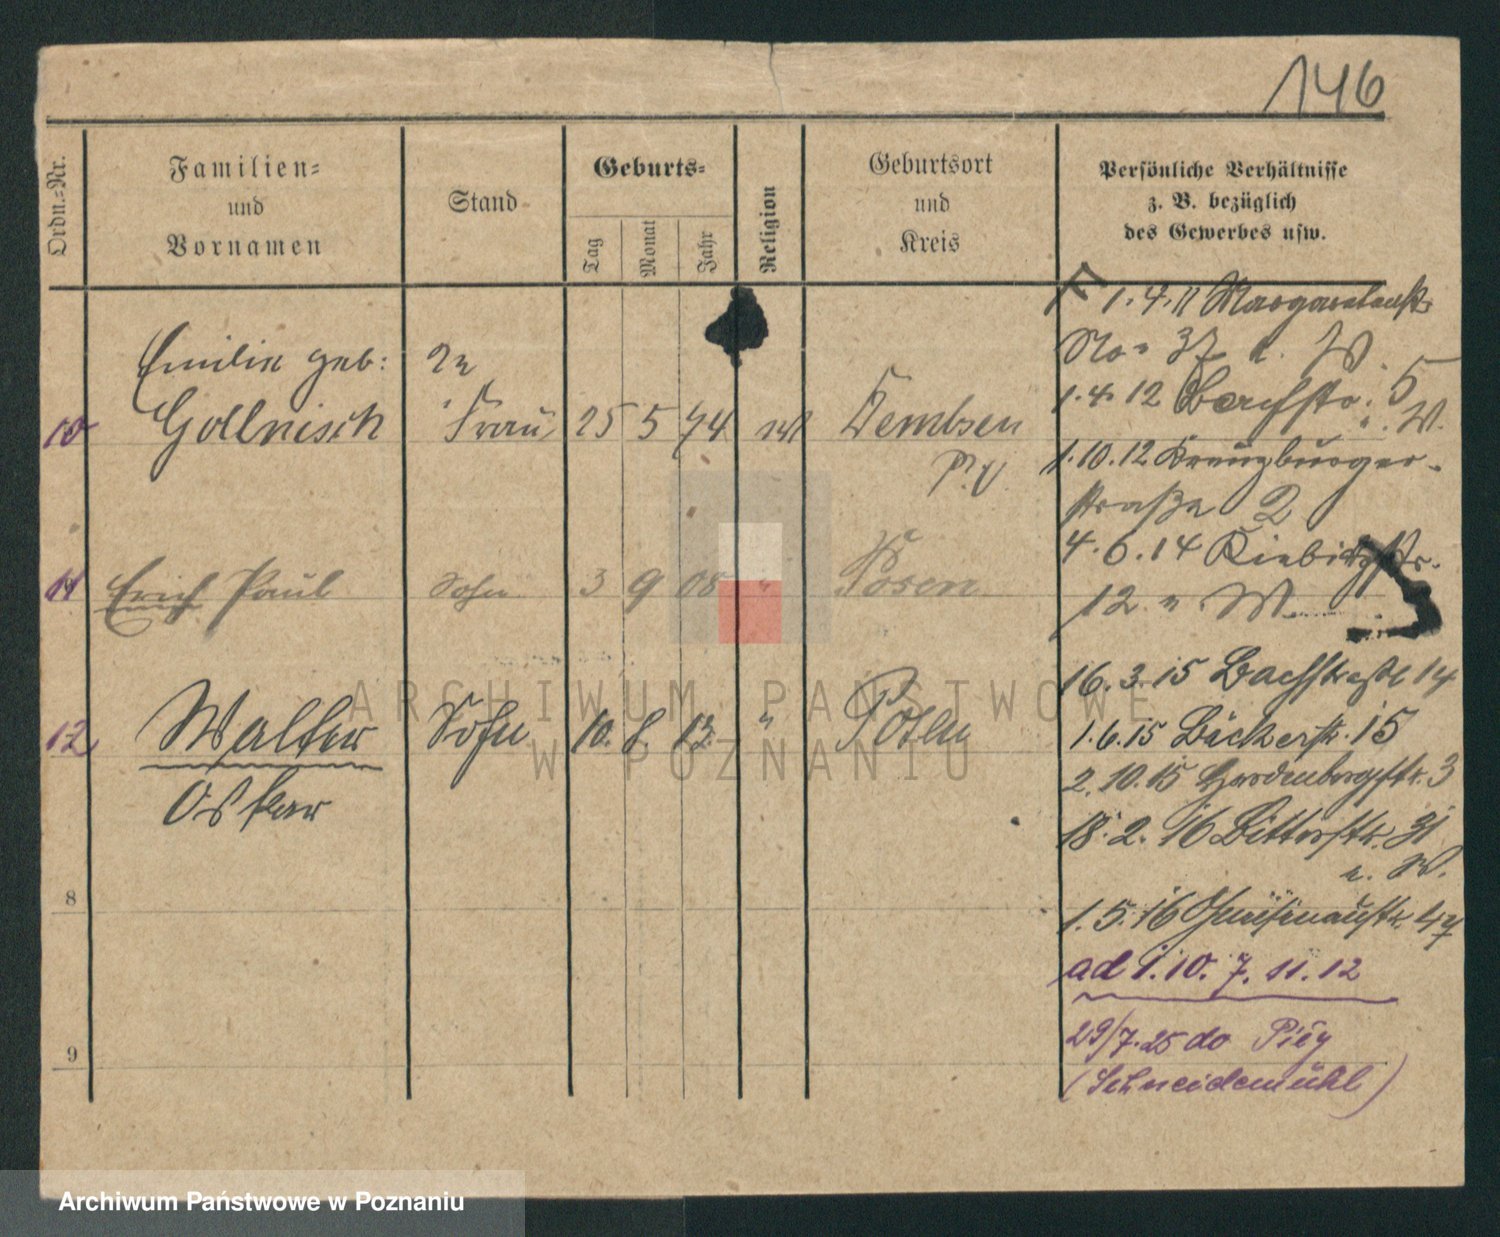 146
Ordn.=Nr.
Familien=
und
Vornamen
Stand
Geburts=
Tag
Monat
Jahr
Religion
Geburtsort
und
Kreis
Persönliche Verhältnisse
z. B. bezüglich
des Gewerbes usw.
1.4.11 Margaretenstr
No 37 W.
Emilie geb:
1.4.12 5
10 Gollnisch Frau 25 5 74 Dembsen W.
P.O. 1.10.12 Kreuzburger-
straße 2
4.6.14
11 Erich Paul Sohn 3 9 08 " Posen
12 W
16.3.15 Bachstraße 14
12 Walter Sohn 10. 8. 12. " Posen
1.6.15 Bäckerstr. 15
2.10.15 Hardenbergstr. 3
Oskar
18.2.16 31
W.
8
1.5.16 Gneisenaustr. 47
ad 1.10. 7.11.12
29/7.25 do Piły
9
(Schneidemühl)
ARCHIWUM PAŃSTWOWE
W POZNANIU
Archiwum Państwowe w Poznaniu